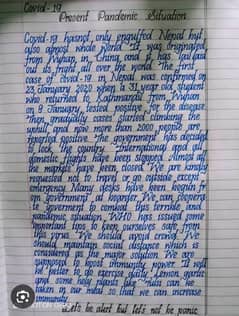 Covid-19
Present Pandemic Situation
Covid-19 has not only engulfed Nepal but
also almost whole world. It was originated
from Wuhan, in China, and it has laid
out its fright all over the world. The first
case of covid-19 in Nepal was confirmed on
23 January 2020 when a 31 year old student
who returned to Kathmandu from Wuhan
on 9 January, tested positive for the disease.
Then gradually cases started climbing the
uphill and now more than 2000 people are
reported positive. The government has decided
to lock the country. International and all
domestic flights have been stopped. Almost all
the markets have been closed. We are kindly
requested not to move or go outside except
emergency. Many desks have been
government
government to combat this terrible and
pandemic situation. WHO has issued some
important tips to keep ourselves safe from
this virus. We should avoid crowd. We
should maintain social distance which is
considered as the major solution. We are
supposed to boost immunity power. It will
be better to do exercise daily. Lemon, garlic
and some hot fluids like should be
taken in our meal so that we can increase
immunity.
Let's be alert but let's not be panic